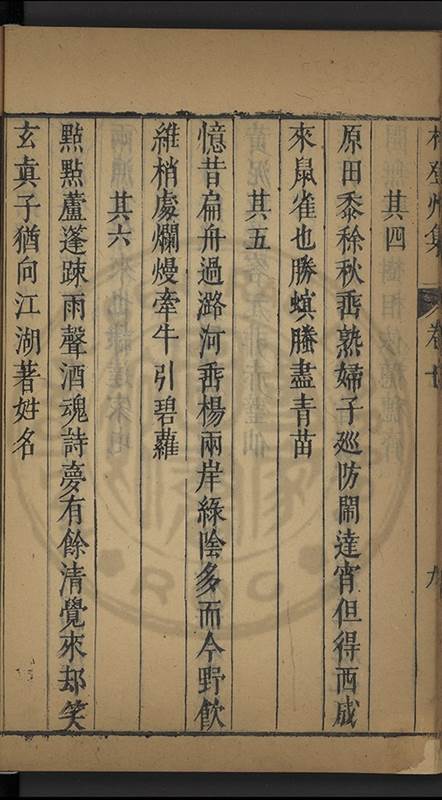 其四
原田黍稌秋垂熟婦子廵防閙達宵但得西成
來鼠雀也勝螟螣盡青苗
其五
憶昔扁舟過潞河垂楊兩岸綠陰多而今野飲
維梢處爛熳牽牛引碧蘿
其六
點點蘆蓬踈雨聲酒魂詩夢有餘清覺來却笑
玄真子猶向江湖著姓名